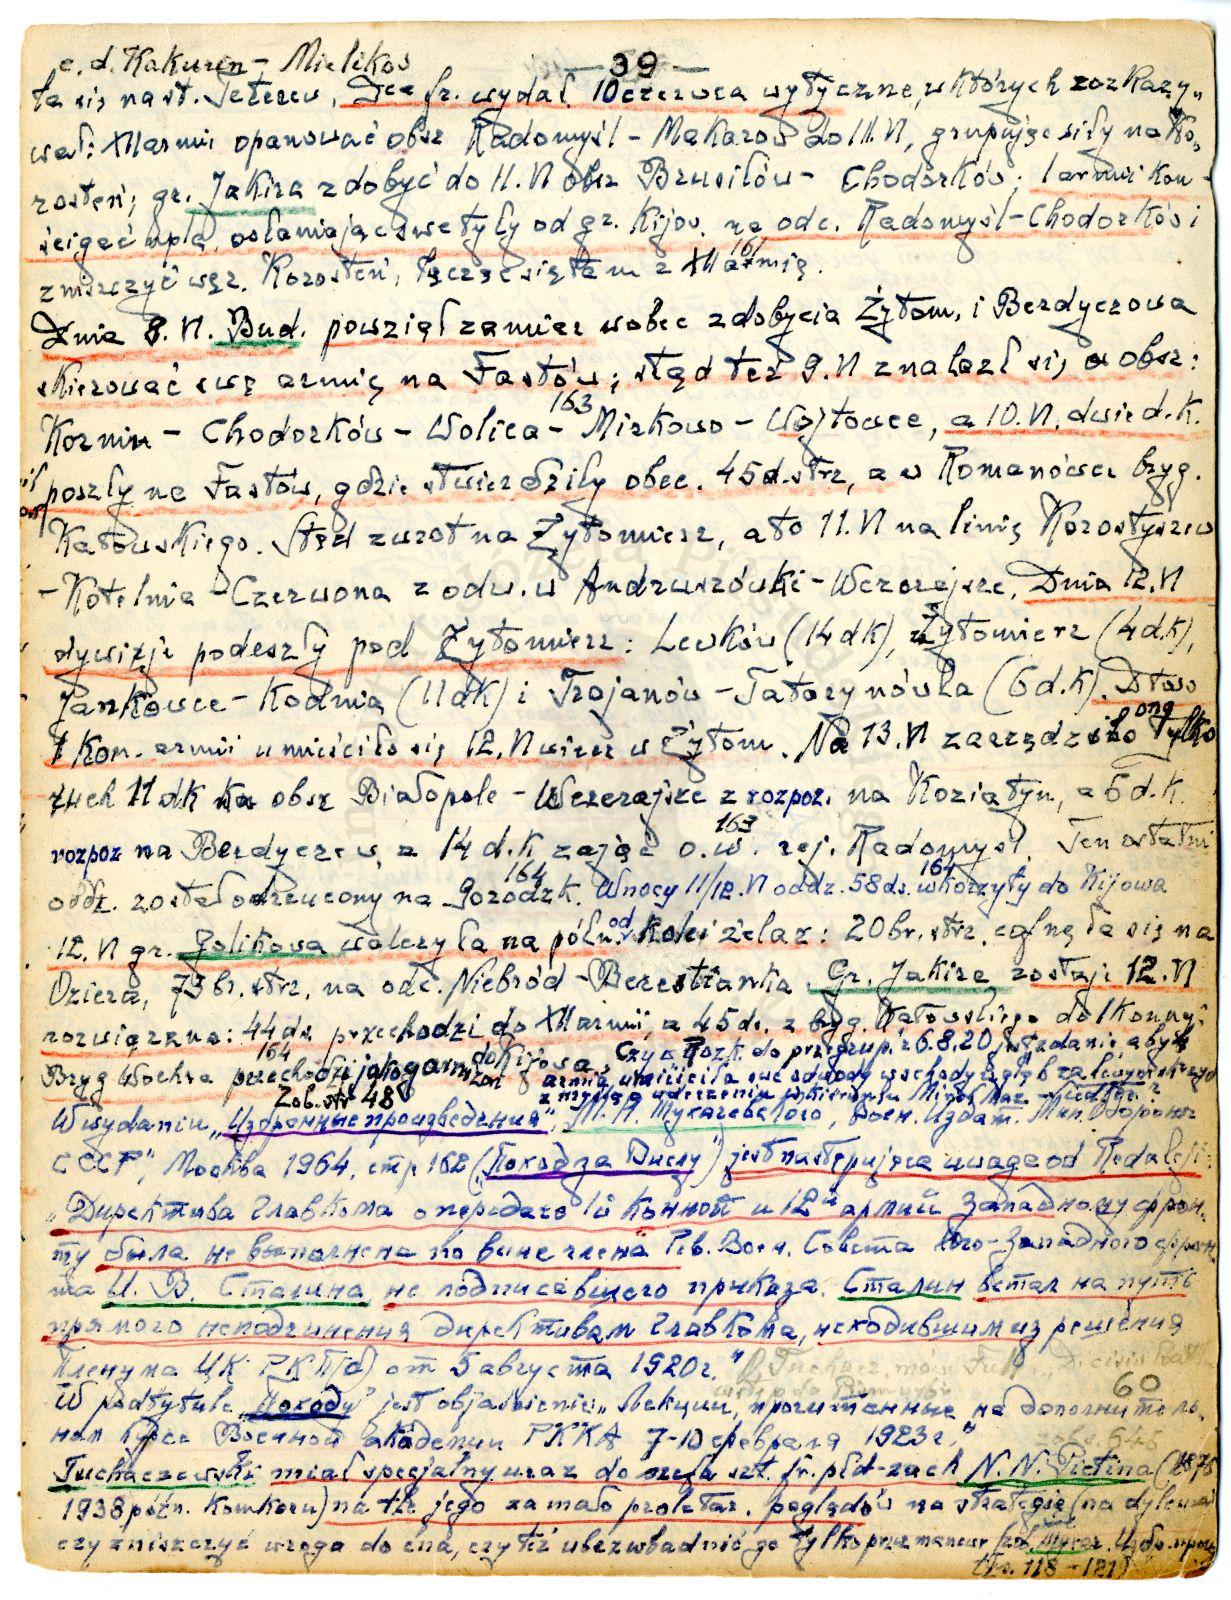 c.d. Kakurin - Mielikow
- 39 -
ła się na st. Teterew, Dca fr. wydał 10 czerwca wytyczne, w których rozkazy-
wał: XII armii opanować obsz Radomyśl - Makarów do 11.VI, grupując siły na Ko-
rosteń; gr. Jakira zdobyć do 11.VI obsz Brusiłów - Chodorków; 1 armii kon -
ścigać npla, osłaniając swe tyły od gr. Kijow. na odc. Radomyśl - Chodorków i
zniszczyć węz. Korosteń, łącząc się tam z XII armią. 161
Dnia 8.VI. Bud. powziął zamiar wobec zdobycia Żytom. i Berdyczowa
skierować swą armię na Fastów; stąd też 9.VI znalazł się w obsz:
Kornin - Chodorków - Wolica - Mirkowo - Wojtowce, 163 a 10.VI. dwie d.k.
poszły na Fastów, gdzie stwierdziły obec. 45 d. strz, a w Romanówce bryg.
Kotowskiego. Stąd zwrot na Żytomierz, a to 11.VI na linię Korostyszew
- Kotelnia - Czerwona z odw. w Andruszówki - Wczorajsze. Dnia 12.VI
dywizje podeszły pod Żytomierz: Lewków (14 dk), Żytomierz (4 dk),
Jankowce - Kodnia (11 dk) i Trojanów - Tatarynówka (6 d.k). Dtwo
1 Kon. armii umieściło się 12.VI wiecz w Żytom. Na 13.VI zarządziło ono tylko
ruch 11 dk na obsz Białopole - Wczorajsze z rozpoz. na Koziatyn, a 6 d.k.
rozpoz na Berdyczew, a 14 d.k zająć o.w. rej. Radomyśl. 163 Ten ostatni
oddz. został odrzucony na Gorodzk. 164 W nocy 11/12.VI oddz. 58 ds. wkroczyły do Kijowa 164
12.VI gr. Golikowa walczyła na półn. od kolei żelaz: 20 br. strz. cofnęła się na
Oziera, 73 br. strz. na odc. Niebród - Berestianka. Gr. Jakira zostaje 12.VI
rozwiązana: 44 ds. przechodzi do XII armii, a 45 ds. z bryg. Kotowskiego do 1 konnej
Bryg Wochra przechodzi jako garnizon do Kijowa. 164 Czy w Rozk. do przegrup. z 6.8.20 jest zdanie aby
armia umieściła swe odwody
z myślą o uderzeniu w kierunku Mińsk Maz
Zob. str 48
W wydaniu „Избранные произведения", М. Н. Тухачевского, Воен. Издат. Мин. Обороны
СССР", Москва 1964, стр 162 („Поход за Вислу") jest następująca uwaga od Redakcji:
„Директива Главкома о передаче 1й конной и 12й армий Западному фрон-
ту была не выполнена по вине члена Рев. Воен. Совета Юго-Западного фрон-
та И. В. Сталина, не подписавшего приказа. Сталин встал на путь
прямого неподчинения директивам Главкома, исходившим из решения
Пленума ЦК РКП(б) от 5 августа 1920 г."
W podtytule „Похода" jest objaśnienie: „Лекции, прочитанные на дополнитель-
60
ном курсе Военной академии РККА 7-10 февраля 1923 г."
Tuchaczewski miał specjalny uraz do szefa szt. fr. płd-zach N. N. Pietina (1876
1938 późn. Komkoru) na tle jego za mało proletar. poglądów na strategię (na dylemat
czy zniszczyć wroga do cna, czy też ubezwładnić go tylko przez manewr
str. 118 - 121)